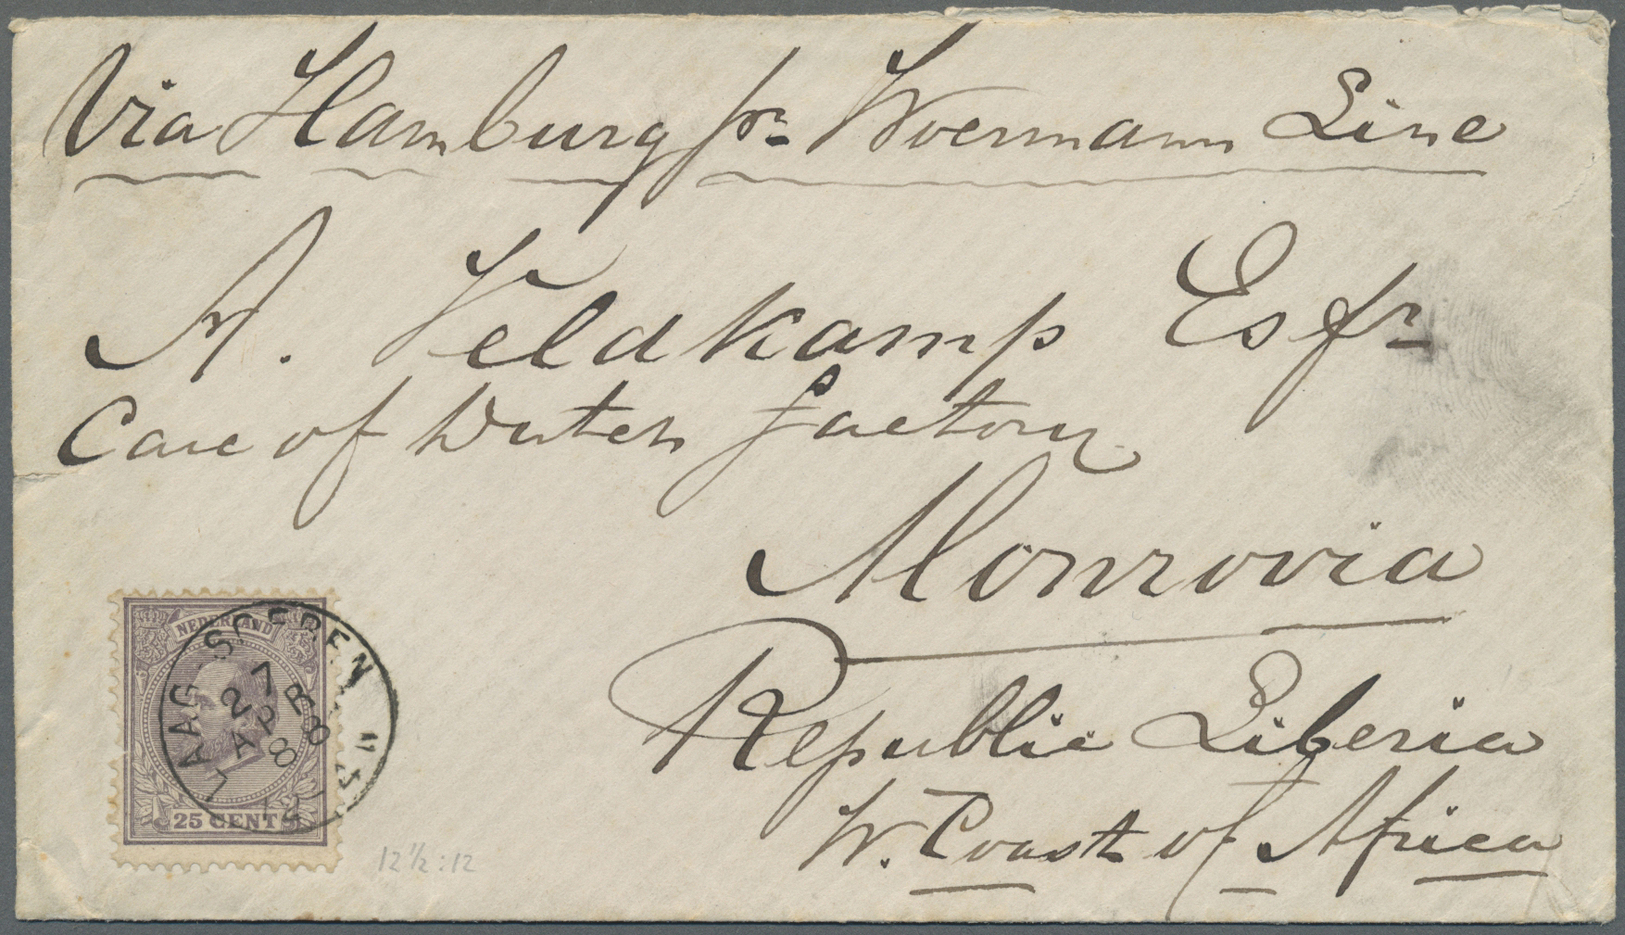 Via Hamburg pr Woermann Line
A. Veldkamp Esqr
Care of Dutch Factory
Monrovia
Republic Liberia
W. Coast of Africa
NEDERLAND
25 CENT
LAAG SOEREN
27
APR
88
12½:12